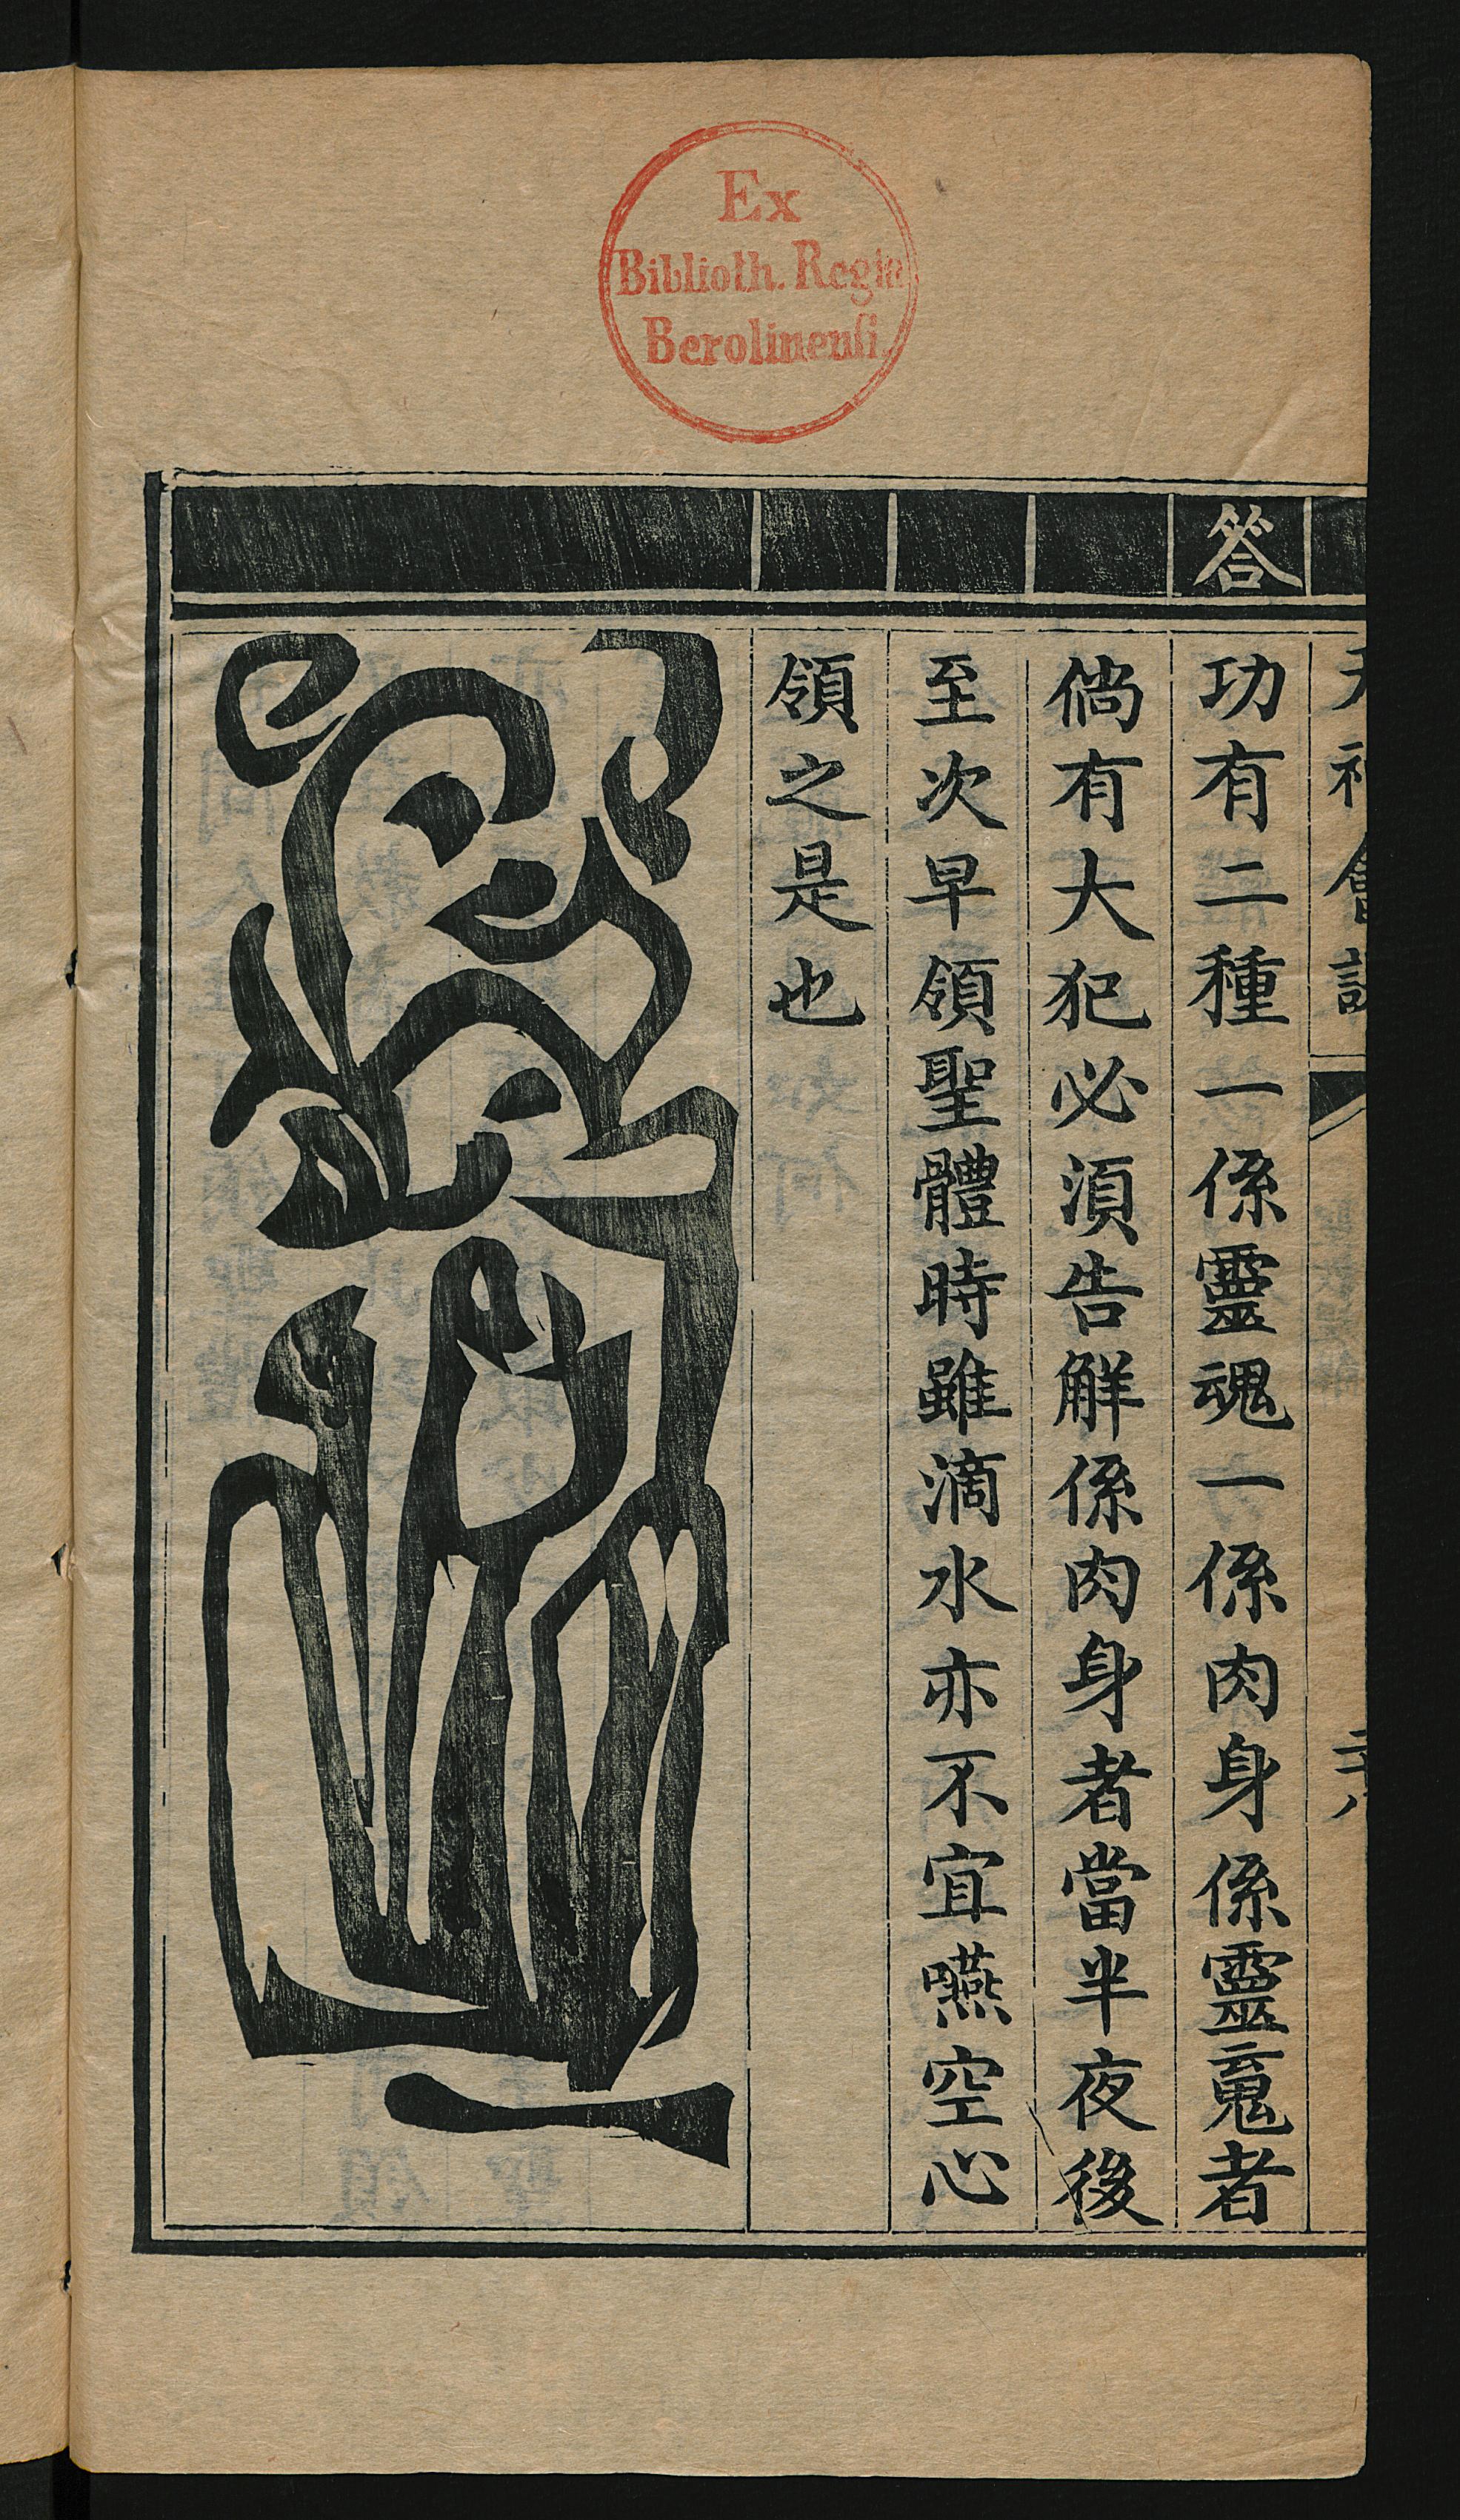 Ex
Biblioth. Regia
Berolinensi.
答
功有二種一係靈魂一係肉身係靈䰟者
倘有大犯必須告解係肉身者當半夜後
至次早領聖體時雖滴水亦不宜嚥空心
領之是也